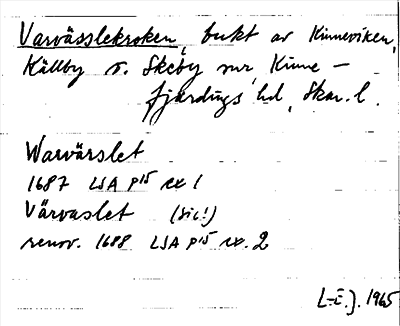 Varvässlekroken, bukt av Kinneviken,
Källby o. Skeby snr, Kinne-
fjärdings hd, Skar. l.
Warvärslet
1687 LSA P15 ex 1
Värvaslet (sic!)
renov. 1688 LSA P15 ex. 2
L-E. J. 1965